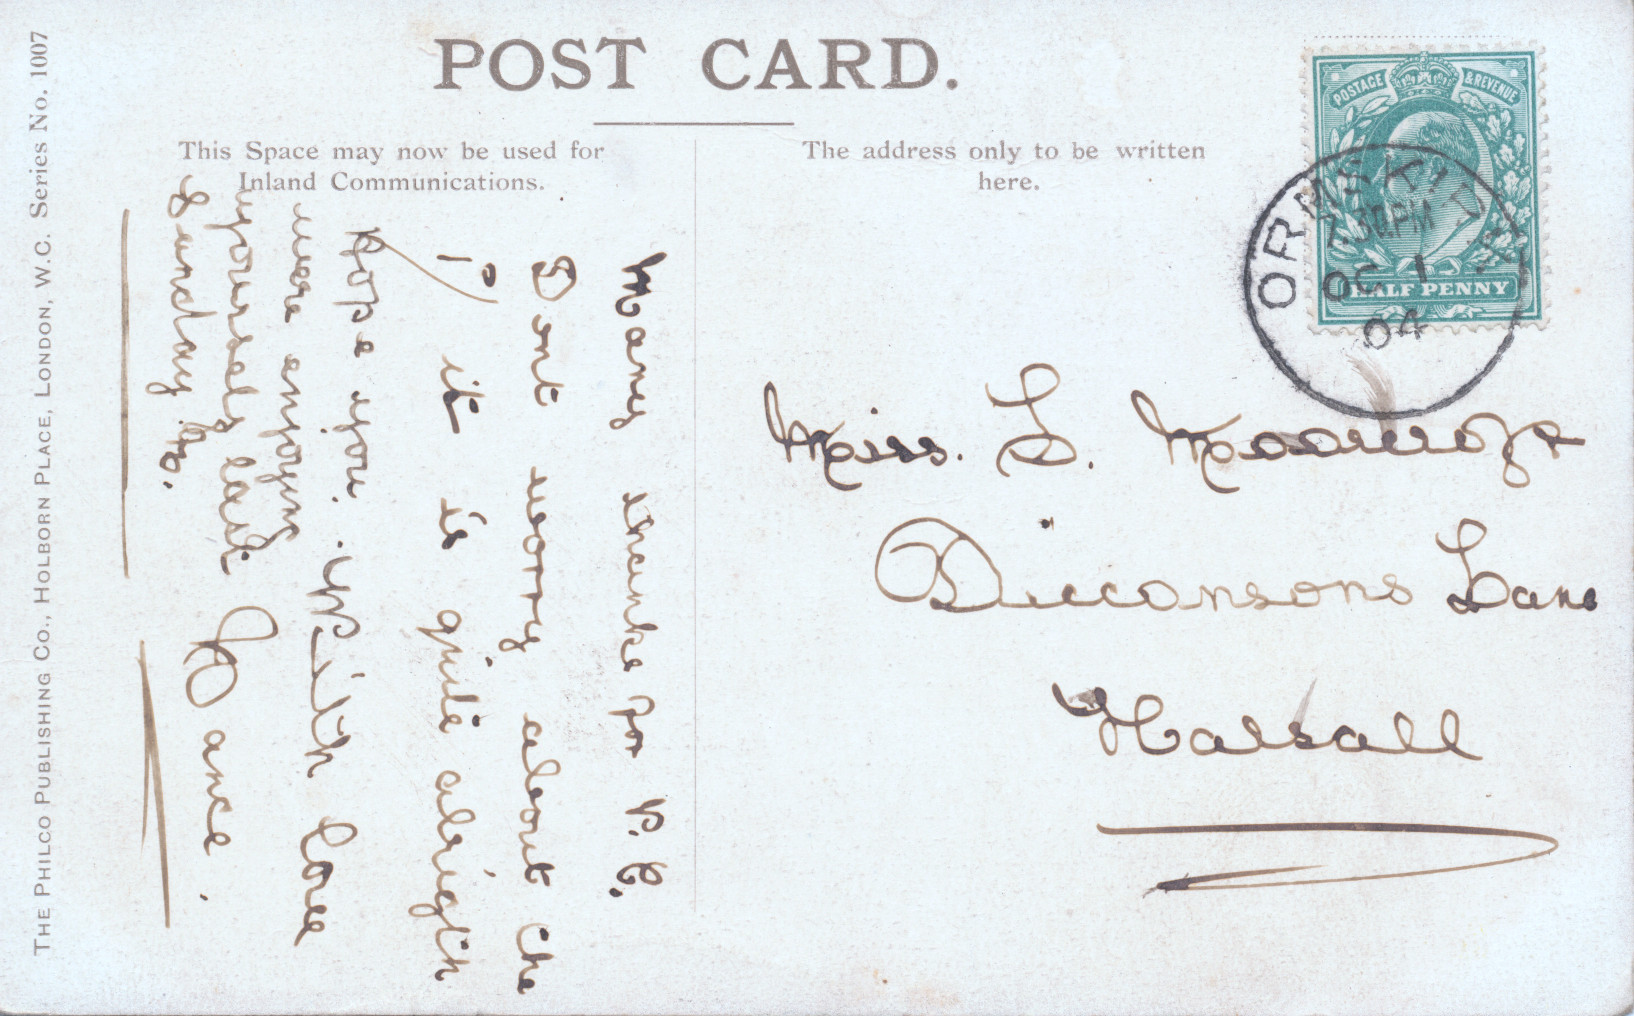 POST CARD.
This Space may now be used for
Inland Communications.
The address only to be written
here.
THE PHILCO PUBLISHING CO., HOLBORN PLACE, LONDON, W.C. Series No. 1007
POSTAGE & REVENUE
HALF PENNY
ORMSKIRK
7.30PM
OC 1
04
Miss. L. Moorcroft
Dicconsons Lane
Halsall
Many thanks for P.C.
Dont worry about the
it is quite alright
Hope you
were enjoying
yourself last
Sunday
With love
Nance.